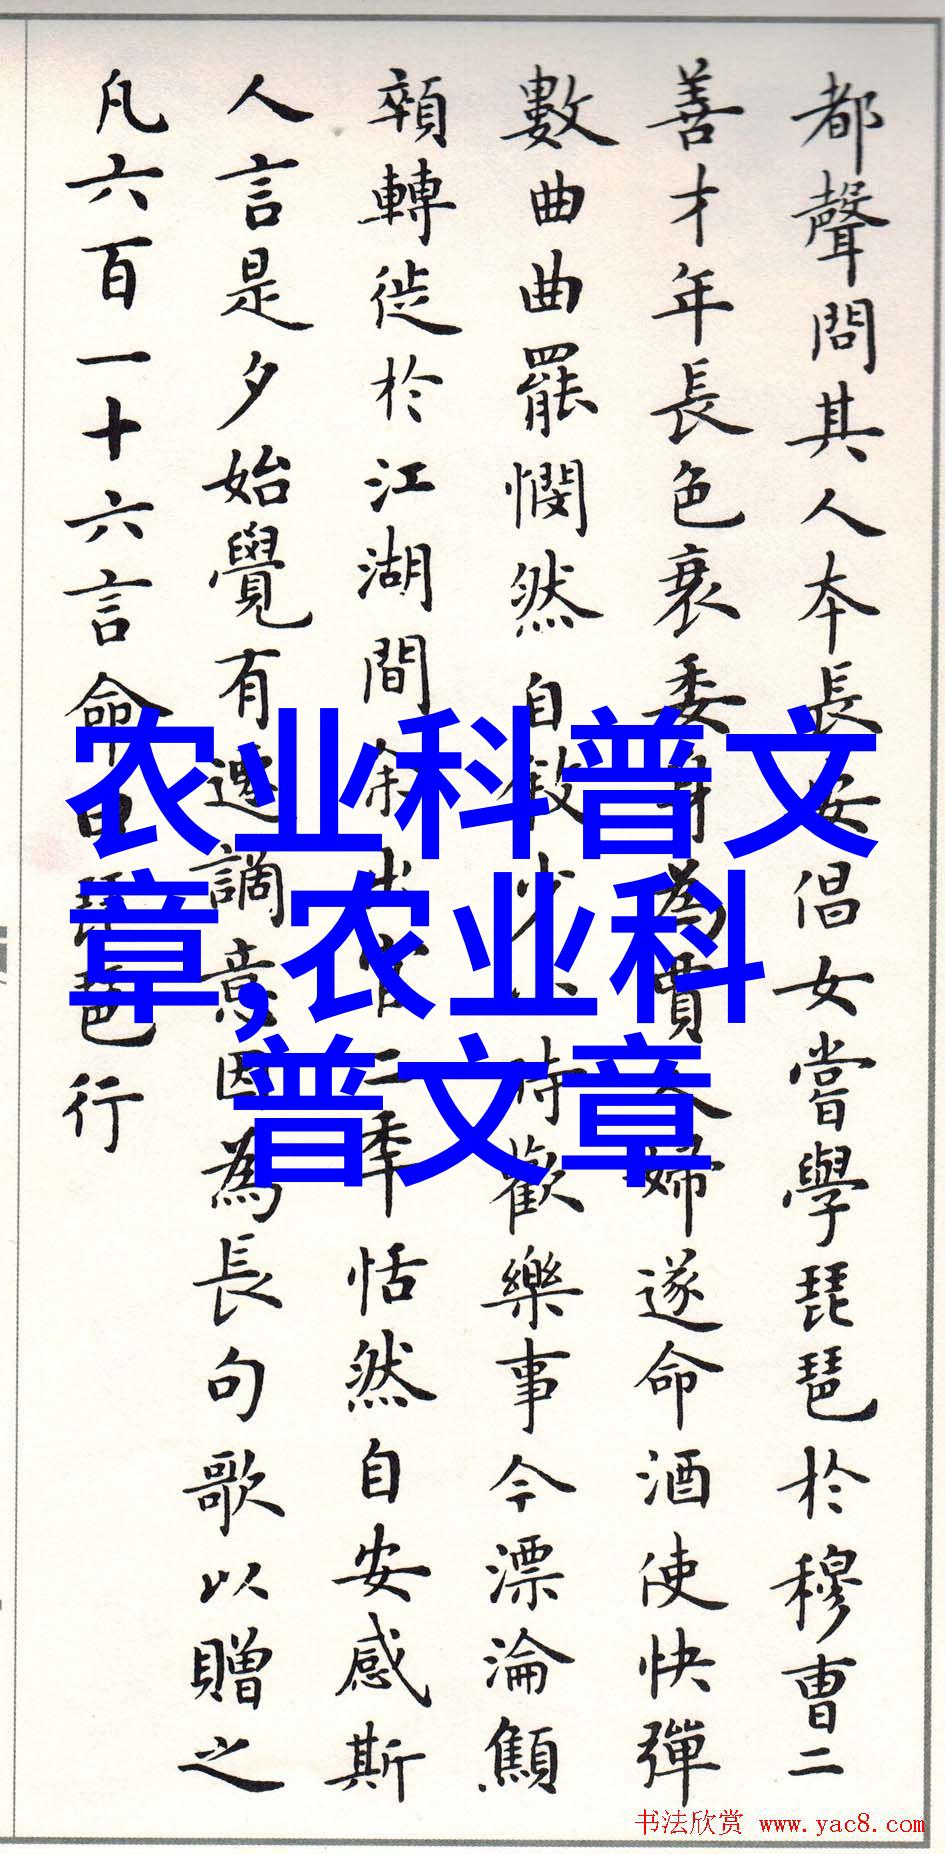 都聲問其人本長安倡女嘗學琵琶於穆曹二
善才年長色衰委身為賈人婦遂命酒使快彈
數曲曲罷憫然自敘少小時歡樂事今漂淪顦
顇轉徙於江湖間余出官二年恬然自安感斯
人言是夕始覺有遷謫意因為長句歌以贈之
凡六百一十六言命曰琵琶行
农业科普文
章,农业科
普文章
书法欣赏 www.yac8.com